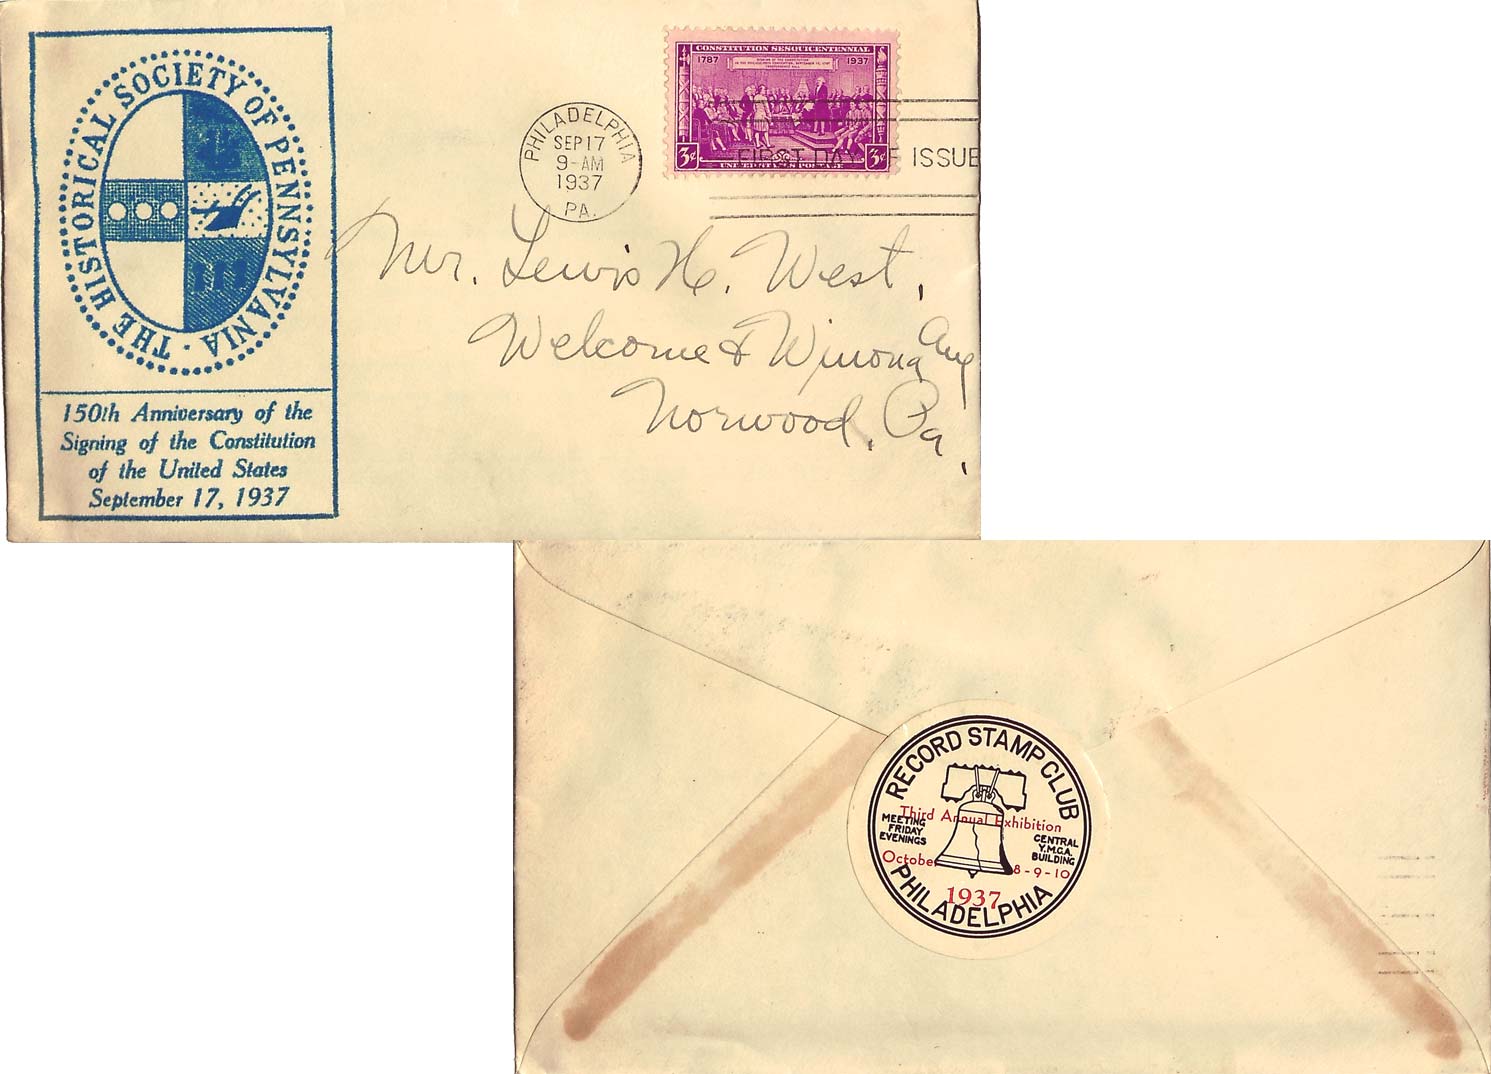 THE HISTORICAL SOCIETY OF PENNSYLVANIA ·
150th Anniversary of the
Signing of the Constitution
of the United States
September 17, 1937
PHILADELPHIA
SEP 17
9-AM
1937
PA.
CONSTITUTION SESQUICENTENNIAL
1787 1937
SIGNING OF THE CONSTITUTION
INDEPENDENCE HALL
3¢ 3¢
UNITED STATES POSTAGE
FIRST DAY OF ISSUE
Mr. Lewis H. West,
Welcome & Winona Ave
Norwood, Pa.
RECORD STAMP CLUB
Third Annual Exhibition
MEETING
FRIDAY
EVENINGS
CENTRAL
Y.M.C.A.
BUILDING
October 8-9-10
1937
PHILADELPHIA